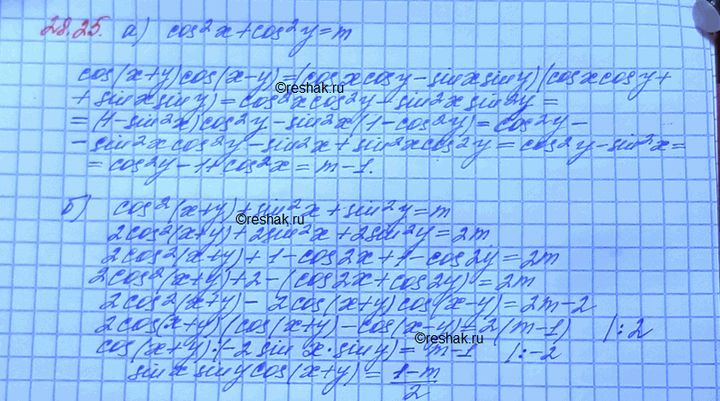 28.25. а) cos²x+cos²y=m
cos(x+y)cos(x-y)=(cosxcosy-sinxsiny)(cosxcosy+
©reshak.ru
+sinxsiny)=cos²xcos²y-sin²xsin²y=
=(1-sin²x)cos²y-sin²x(1-cos²y)=cos²y-
-sin²xcos²y-sin²x+sin²xcos²y=cos²y-sin²x=
=cos²y-1+cos²x=m-1.
б) cos²(x+y)+sin²x+sin²y=m
©reshak.ru
2cos²(x+y)+2sin²x+2sin²y=2m
2cos²(x+y)+1-cos2x+1-cos2y=2m
2cos²(x+y)+2-(cos2x+cos2y)=2m
2cos²(x+y)-2cos(x+y)cos(x-y)=2m-2
2cos(x+y)(cos(x+y)-cos(x-y)=2(m-1) |:2
©reshak.ru
cos(x+y)·(-2sinx·siny)=m-1 |:-2
sinxsinycos(x+y)=1-m/2